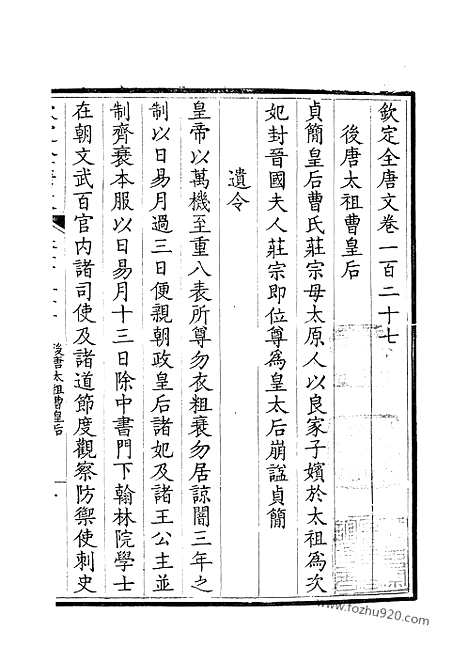 欽定全唐文卷一百二十七
後唐太祖曹皇后
貞簡皇后曹氏莊宗母太原人以良家子嬪於太祖爲次
妃封晉國夫人莊宗即位尊爲皇太后崩諡貞簡
遺令
皇帝以萬機至重八表所尊勿衣粗衰勿居諒闇三年之
制以日易月過三日便親朝政皇后諸妃及諸王公主並
制齊衰本服以日易月十三日除中書門下翰林院學士
在朝文武百官內諸司使及諸道節度觀察防禦使刺史
後唐太祖曹皇后
www.fozhu920.com